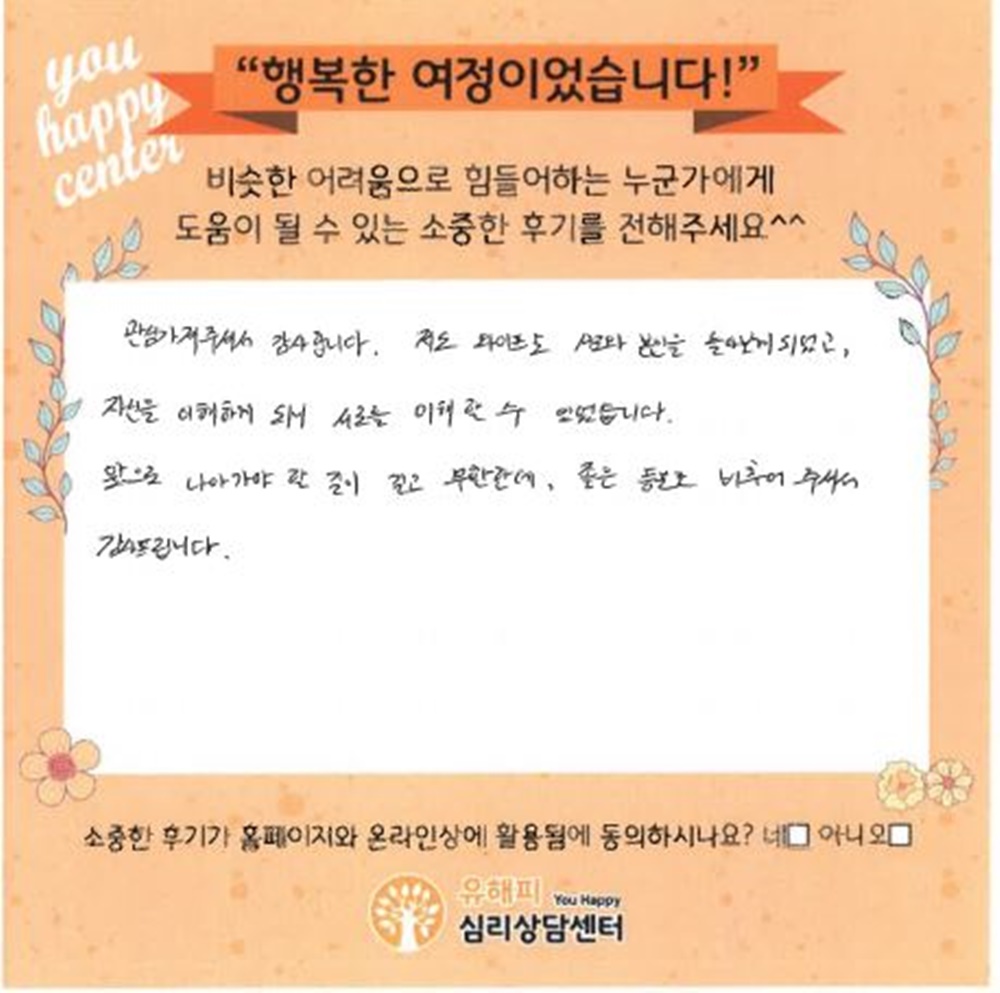 you
happy
center
“행복한 여정이었습니다!”
비슷한 어려움으로 힘들어하는 누군가에게
도움이 될 수 있는 소중한 후기를 전해주세요^^
관심가져주셔서 감사합니다. 저도 와이프도 서로와 본인을 돌아보게 되었고,
자신을 이해하게 되어 서로를 이해 할 수 있었습니다.
앞으로 나아가야 할 길이 길고 무한한데, 좋은 등불로 비추어 주셔서
감사드립니다.
소중한 후기가 홈페이지와 온라인상에 활용됨에 동의하시나요? 네□ 아니오□
유해피 You Happy
심리상담센터